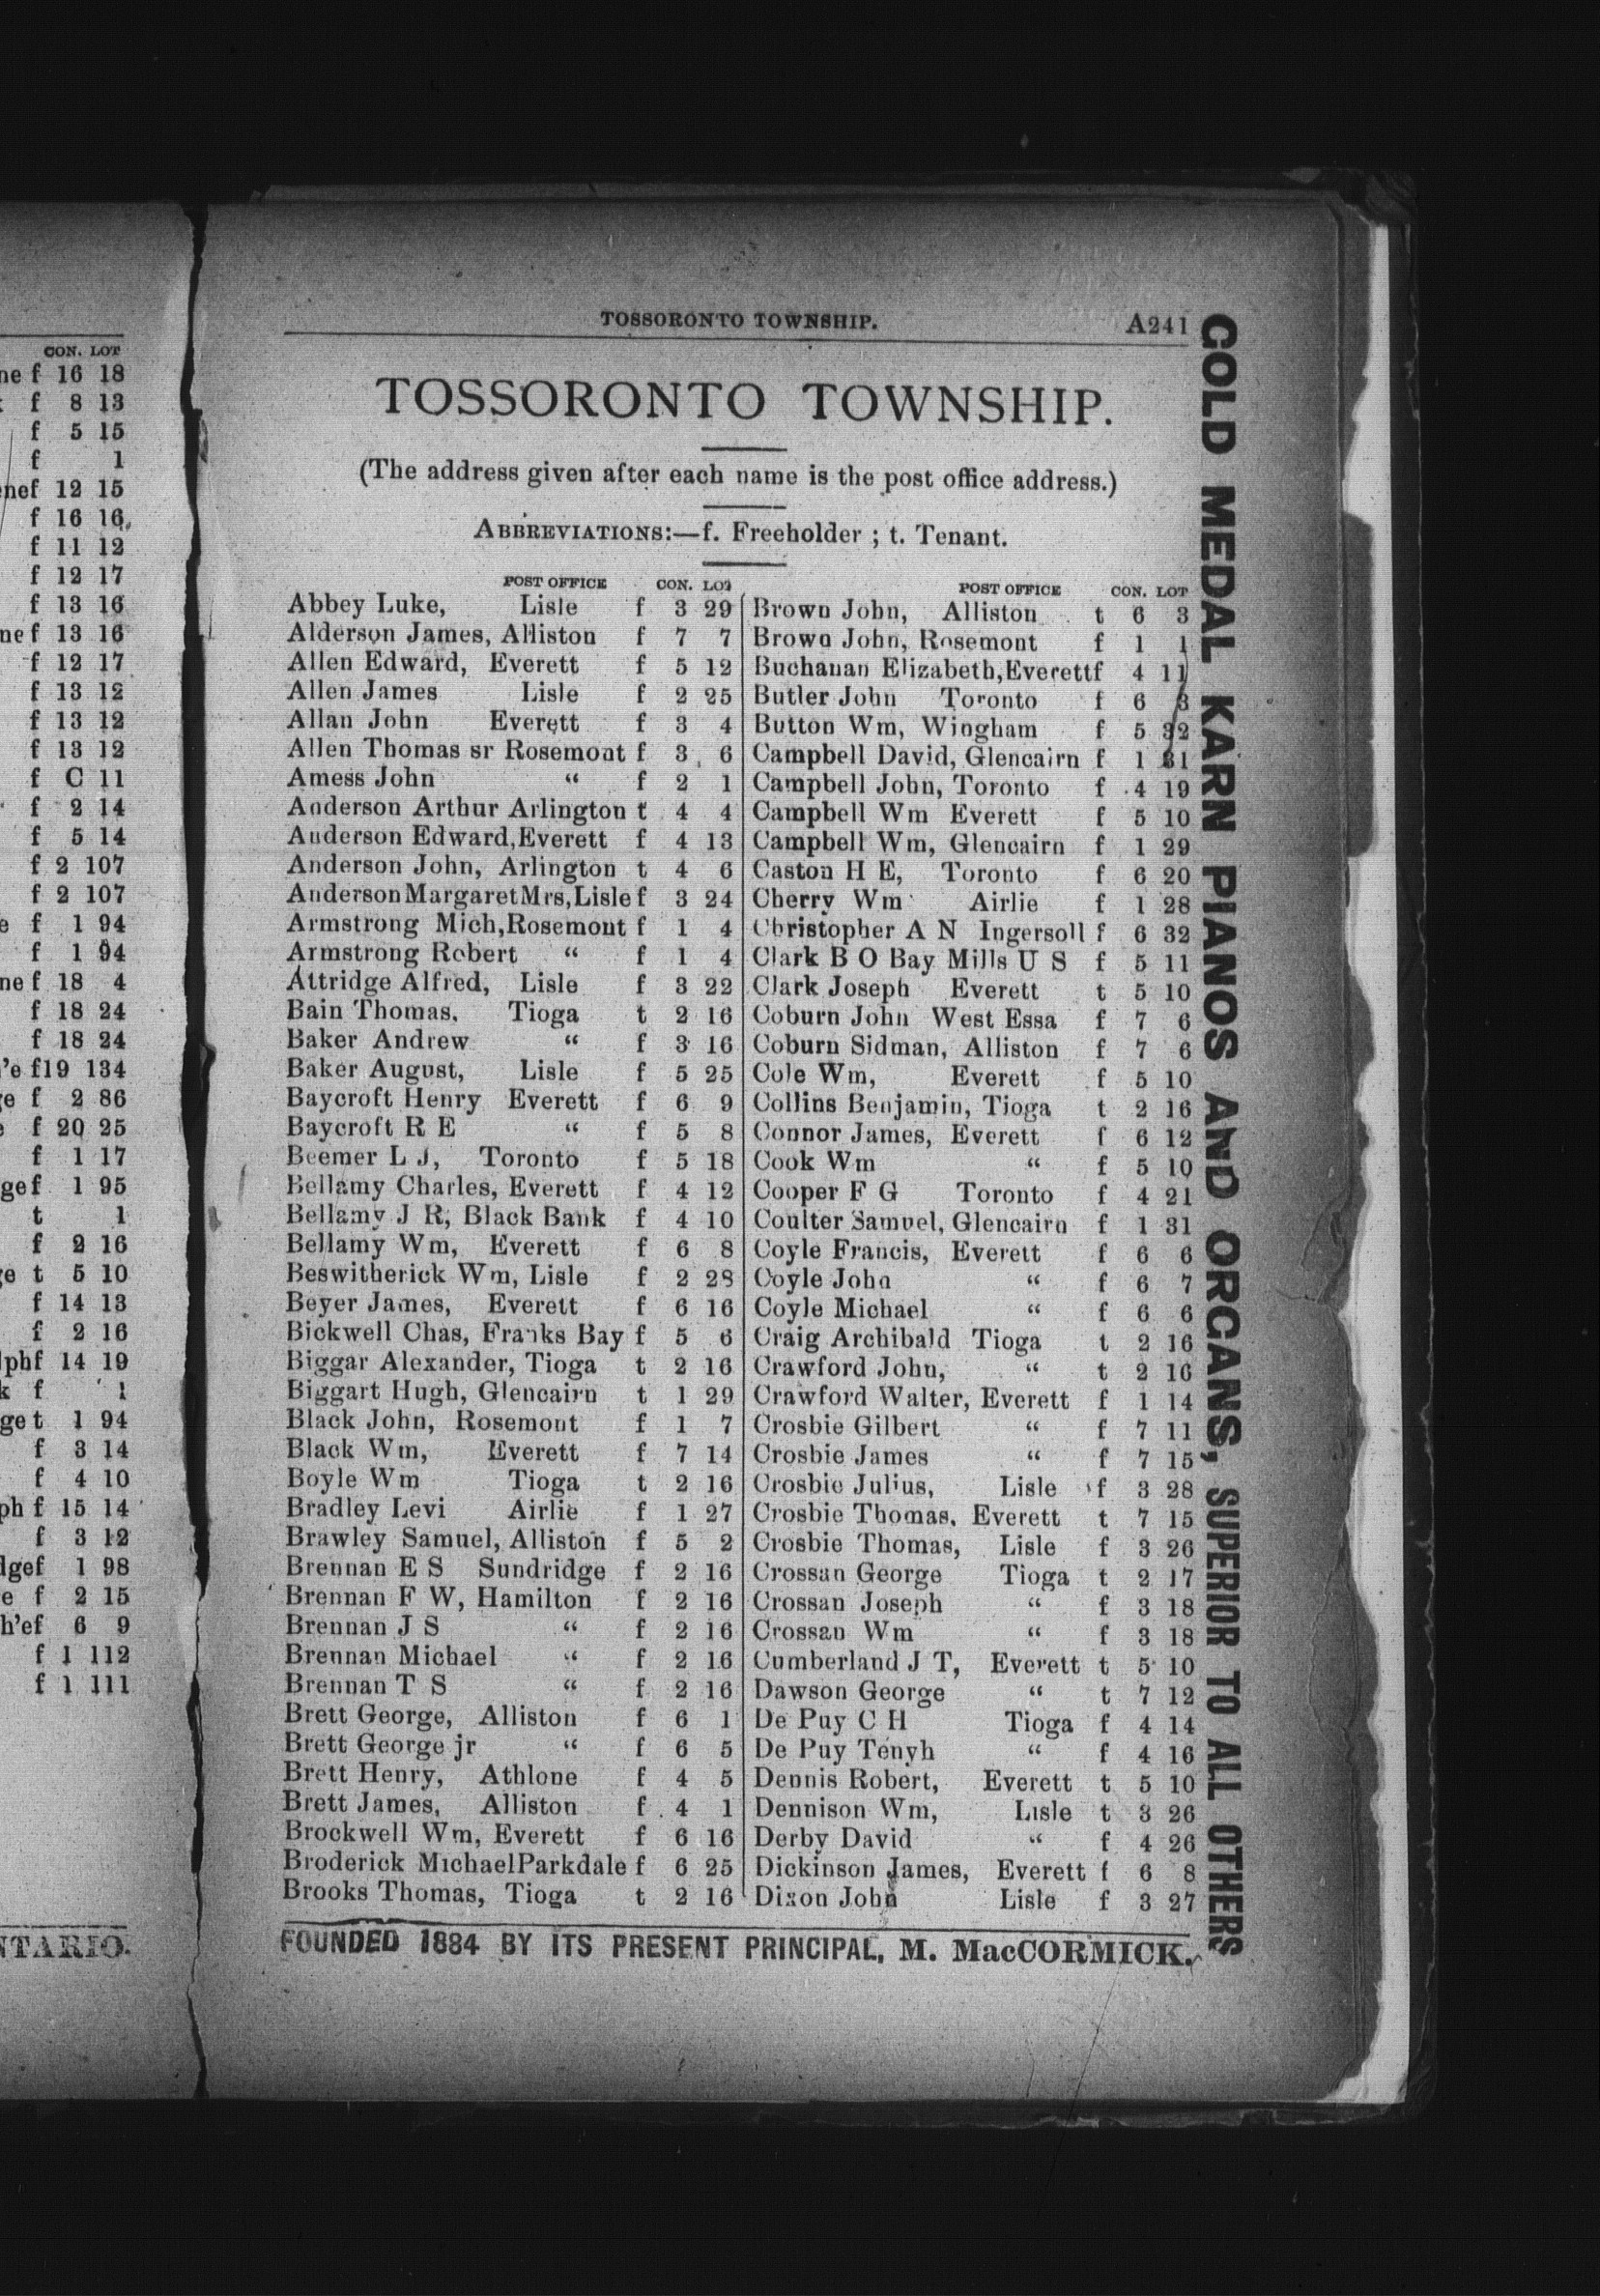 CON. LOT
ne f 16 18
f 8 13
f 5 15
f 1
nef 12 15
f 16 16
f 11 12
f 12 17
f 13 16
ne f 13 16
f 12 17
f 13 12
f 13 12
f 13 12
f C 11
f 2 14
f 5 14
f 2 107
f 2 107
e f 1 94
f 1 94
ne f 18 4
f 18 24
f 18 24
'e f19 134
ge f 2 86
e f 20 25
f 1 17
gef 1 95
t 1
f 2 16
ge t 5 10
f 14 13
f 2 16
lphf 14 19
k f 1
ge t 1 94
f 3 14
f 4 10
ph f 15 14
f 3 12
dgef 1 98
e f 2 15
h'ef 6 9
f 1 112
f 1 111
NTARIO.
TOSSORONTO TOWNSHIP. A241
TOSSORONTO TOWNSHIP.
(The address given after each name is the post office address.)
ABBREVIATIONS:—f. Freeholder ; t. Tenant.
POST OFFICE CON. LOT
Abbey Luke, Lisle f 3 29
Alderson James, Alliston f 7 7
Allen Edward, Everett f 5 12
Allen James Lisle f 2 25
Allan John Everett f 3 4
Allen Thomas sr Rosemont f 3 6
Amess John “ f 2 1
Anderson Arthur Arlington t 4 4
Anderson Edward, Everett f 4 13
Anderson John, Arlington t 4 6
Anderson Margaret Mrs, Lisle f 3 24
Armstrong Mich, Rosemont f 1 4
Armstrong Robert “ f 1 4
Attridge Alfred, Lisle f 3 22
Bain Thomas. Tioga t 2 16
Baker Andrew “ f 3 16
Baker August, Lisle f 5 25
Baycroft Henry Everett f 6 9
Baycroft R E “ f 5 8
Beemer L J, Toronto f 5 18
Bellamy Charles, Everett f 4 12
Bellamy J R, Black Bank f 4 10
Bellamy Wm, Everett f 6 8
Beswitherick Wm, Lisle f 2 28
Beyer James, Everett f 6 16
Bickwell Chas, Franks Bay f 5 6
Biggar Alexander, Tioga t 2 16
Biggart Hugh, Glencairn t 1 29
Black John, Rosemont f 1 7
Black Wm, Everett f 7 14
Boyle Wm Tioga t 2 16
Bradley Levi Airlie f 1 27
Brawley Samuel, Alliston f 5 2
Brennan E S Sundridge f 2 16
Brennan F W, Hamilton f 2 16
Brennan J S “ f 2 16
Brennan Michael “ f 2 16
Brennan T S “ f 2 16
Brett George, Alliston f 6 1
Brett George jr “ f 6 5
Brett Henry, Athlone f 4 5
Brett James, Alliston f 4 1
Brockwell Wm, Everett f 6 16
Broderick Michael Parkdale f 6 25
Brooks Thomas, Tioga t 2 16
POST OFFICE CON. LOT
Brown John, Alliston t 6 3
Brown John, Rosemont f 1 1
Buchanan Elizabeth, Everett f 4 11
Butler John Toronto f 6 3
Button Wm, Wingham f 5 32
Campbell David, Glencairn f 1 31
Campbell John, Toronto f 4 19
Campbell Wm Everett f 5 10
Campbell Wm, Glencairn f 1 29
Caston H E, Toronto f 6 20
Cherry Wm Airlie f 1 28
Christopher A N Ingersoll f 6 32
Clark B O Bay Mills U S f 5 11
Clark Joseph Everett t 5 10
Coburn John West Essa f 7 6
Coburn Sidman, Alliston f 7 6
Cole Wm, Everett f 5 10
Collins Benjamin, Tioga t 2 16
Connor James, Everett f 6 12
Cook Wm “ f 5 10
Cooper F G Toronto f 4 21
Coulter Samuel, Glencairn f 1 31
Coyle Francis, Everett f 6 6
Coyle John “ f 6 7
Coyle Michael “ f 6 6
Craig Archibald Tioga t 2 16
Crawford John, “ t 2 16
Crawford Walter, Everett f 1 14
Crosbie Gilbert “ f 7 11
Crosbie James “ f 7 15
Crosbie Julius, Lisle f 3 28
Crosbie Thomas, Everett t 7 15
Crosbie Thomas, Lisle f 3 26
Crossan George Tioga t 2 17
Crossan Joseph “ f 3 18
Crossan Wm “ f 3 18
Cumberland J T, Everett t 5 10
Dawson George “ t 7 12
De Puy C H Tioga f 4 14
De Puy Tenyh “ f 4 16
Dennis Robert, Everett t 5 10
Dennison Wm, Lisle t 3 26
Derby David “ f 4 26
Dickinson James, Everett f 6 8
Dixon John Lisle f 3 27
FOUNDED 1884 BY ITS PRESENT PRINCIPAL, M. MacCORMICK.
GOLD MEDAL KARN PIANOS AND ORGANS, SUPERIOR TO ALL OTHERS